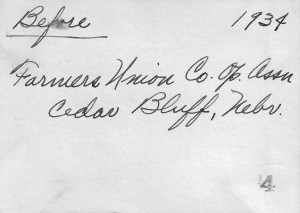 Before 1934
Farmers Union Co. Op. Assn
Cedar Bluff, Nebr.
A